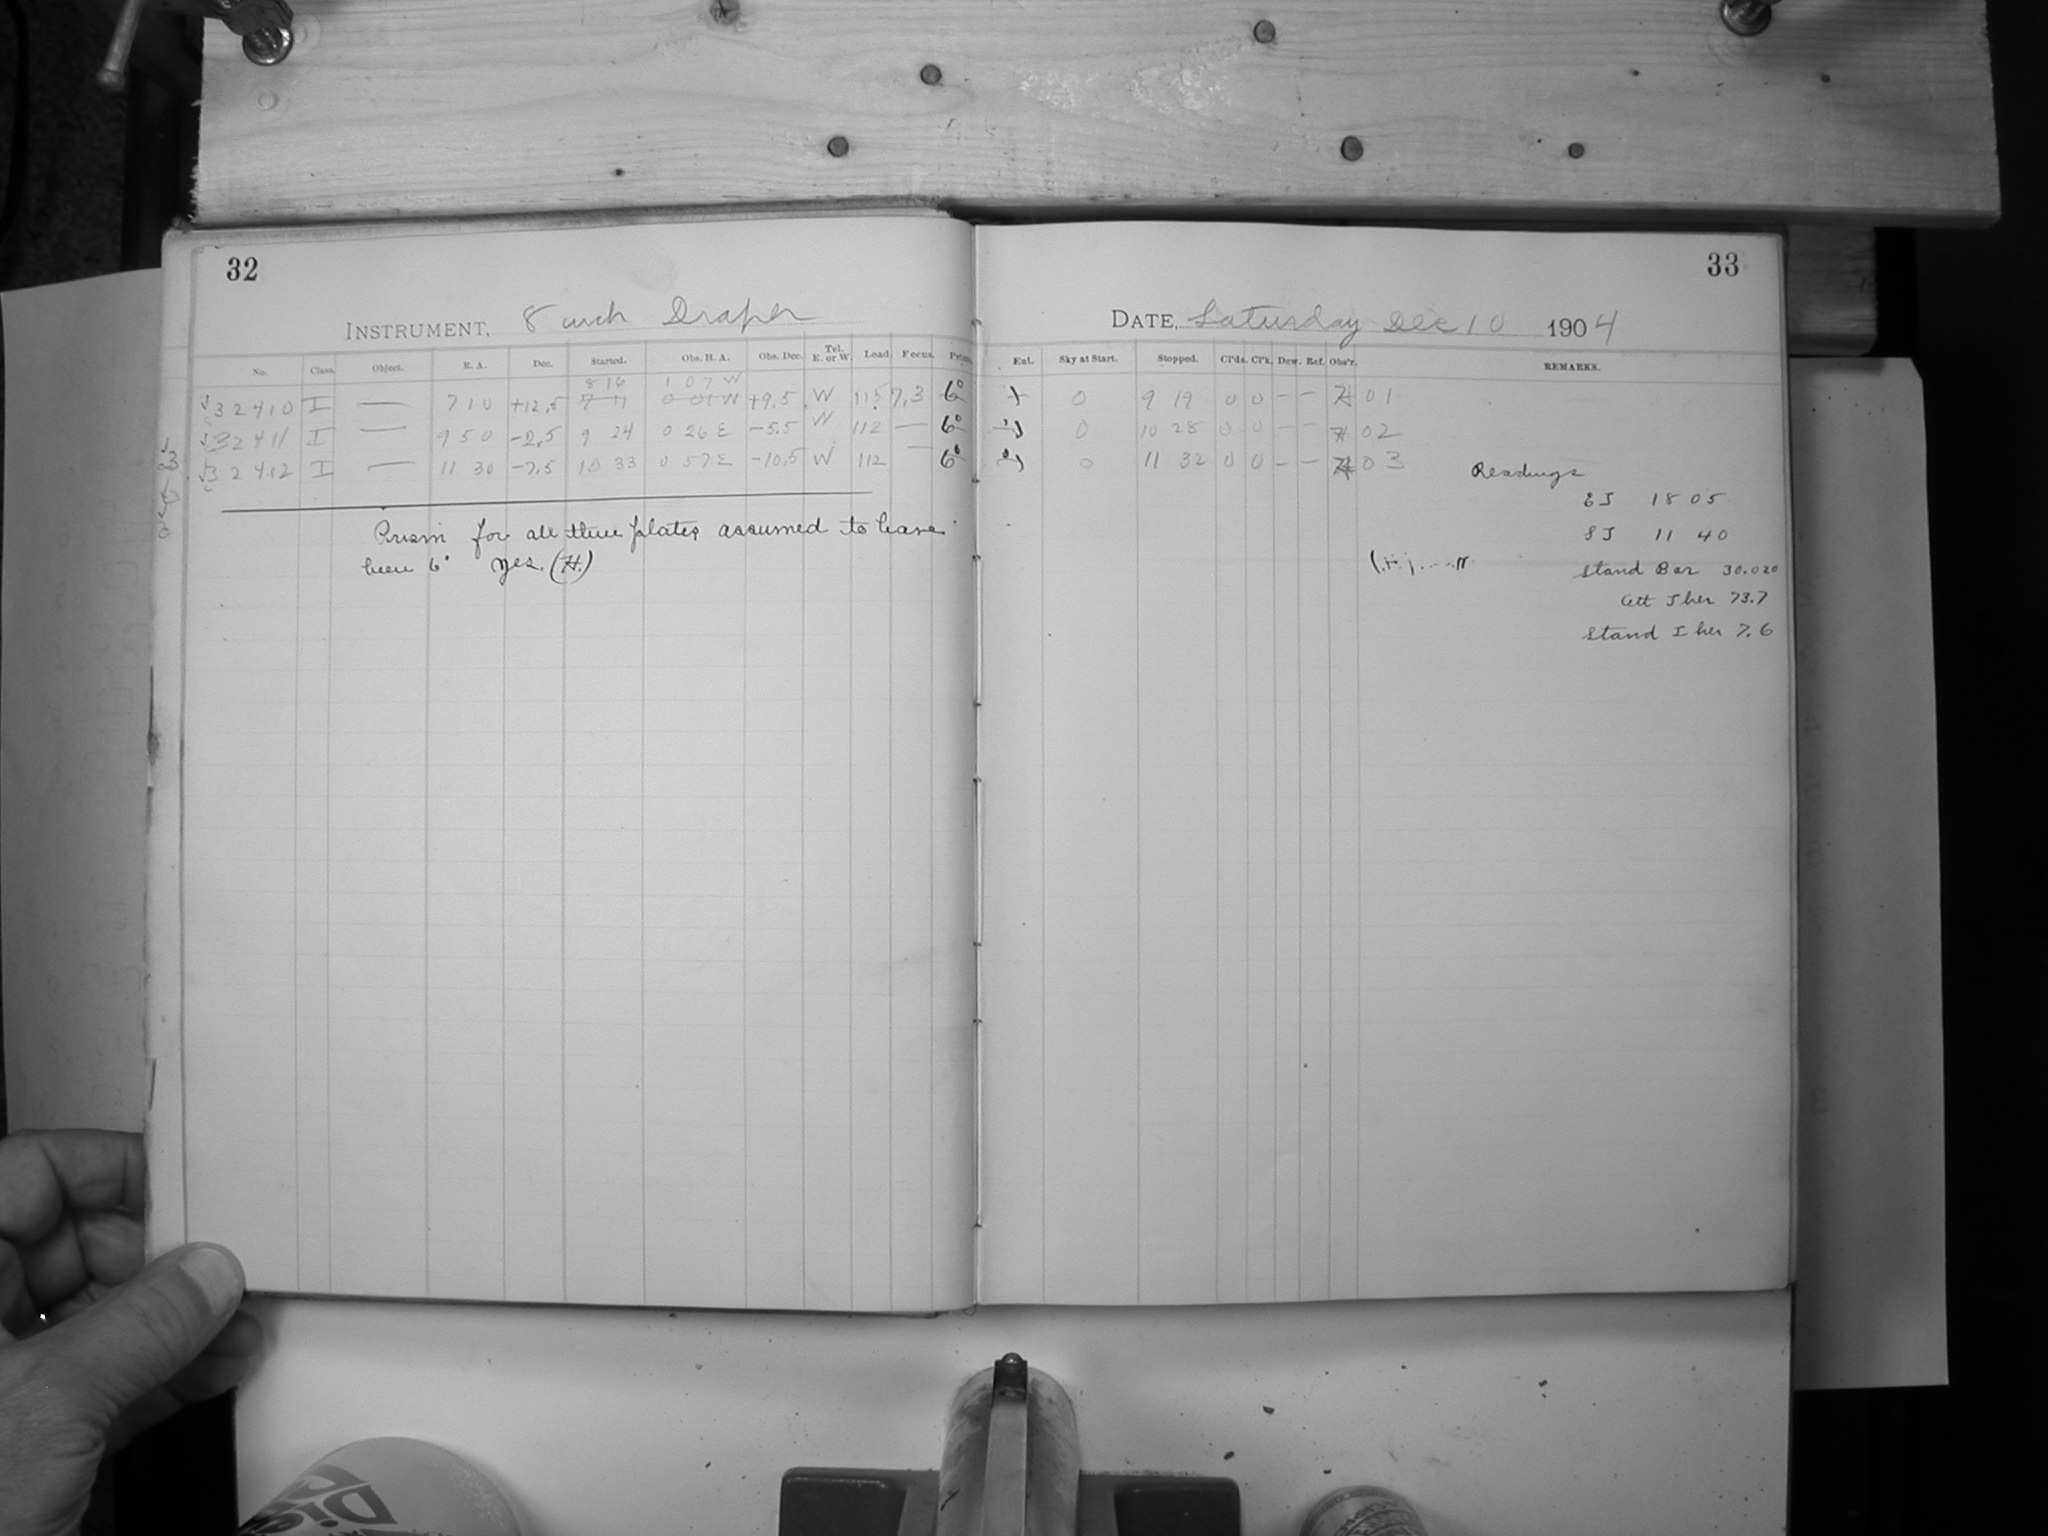 32
INSTRUMENT, 8 inch Draper
No. Class Object. R. A. Dec. Started. Obs. H. A. Obs. Dec. Tel. E. or W. Lead. Focus. Prism
8 16 1 07 W
32410 I — 7 10 +12.5 7 11 0 01 W +9.5 W 115 7.3 6°
32411 I — 9 50 -2.5 9 24 0 26 E -5.5 W 112 — 6°
32412 I — 11 30 -7.5 10 33 0 57 E -10.5 W 112 — 6°
Prism for all three plates assumed to have
been 6° yes. (H.)
33
DATE, Saturday Dec 10 1904
Ent. Sky at Start. Stopped. Cl'ds. Cl'k. Dew. Ref. Obs'r. REMARKS.
0 9 19 0 0 — — H 01
0 10 28 0 0 — — H 02
0 11 32 0 0 — — H 03
Readings
ET 18 05
ST 11 40
Stand Bar 30.020
Att Ther 73.7
Stand Ther 7.6